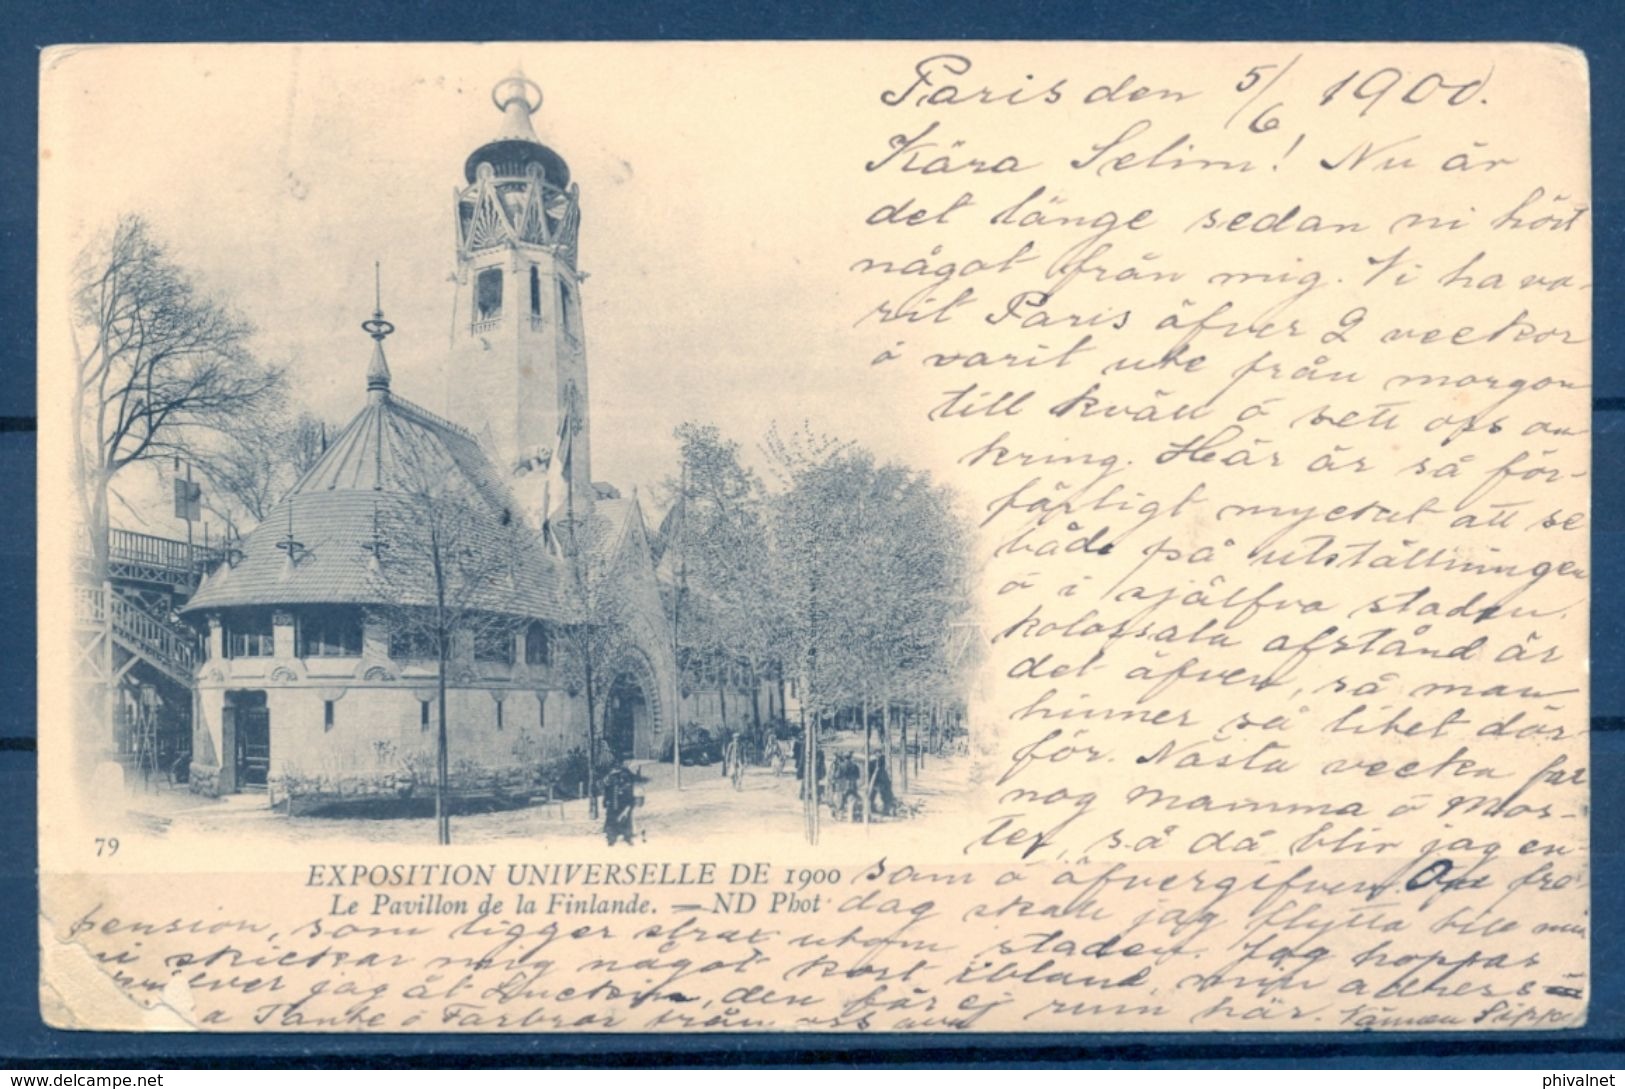 Paris den 5/6 1900.
Kära Selim! Nu är
det länge sedan ni hört
något från mig. Vi ha va-
rit Paris öfver 2 veckor
å varit ute från morgon
till kväll å sett oss om
kring. Här är så för-
färligt mycket att se
både på utställningen
å i själfva staden.
kolossala afstånd är
det äfven, så man
hinner så litet där-
för. Nästa vecka far
nog mamma å Mos-
ter, så då blir jag en-
sam å öfvergifven. På fre-
dag skall jag flytta till min
pension, som ligger strax utom staden. Jag hoppas
ni skickar mig något kort ibland, min adress
skrifver jag åt, den får ej rum här.
Tante å Farbror från oss
79
EXPOSITION UNIVERSELLE DE 1900
Le Pavillon de la Finlande. — ND Phot
phivalnet
delcampe.net